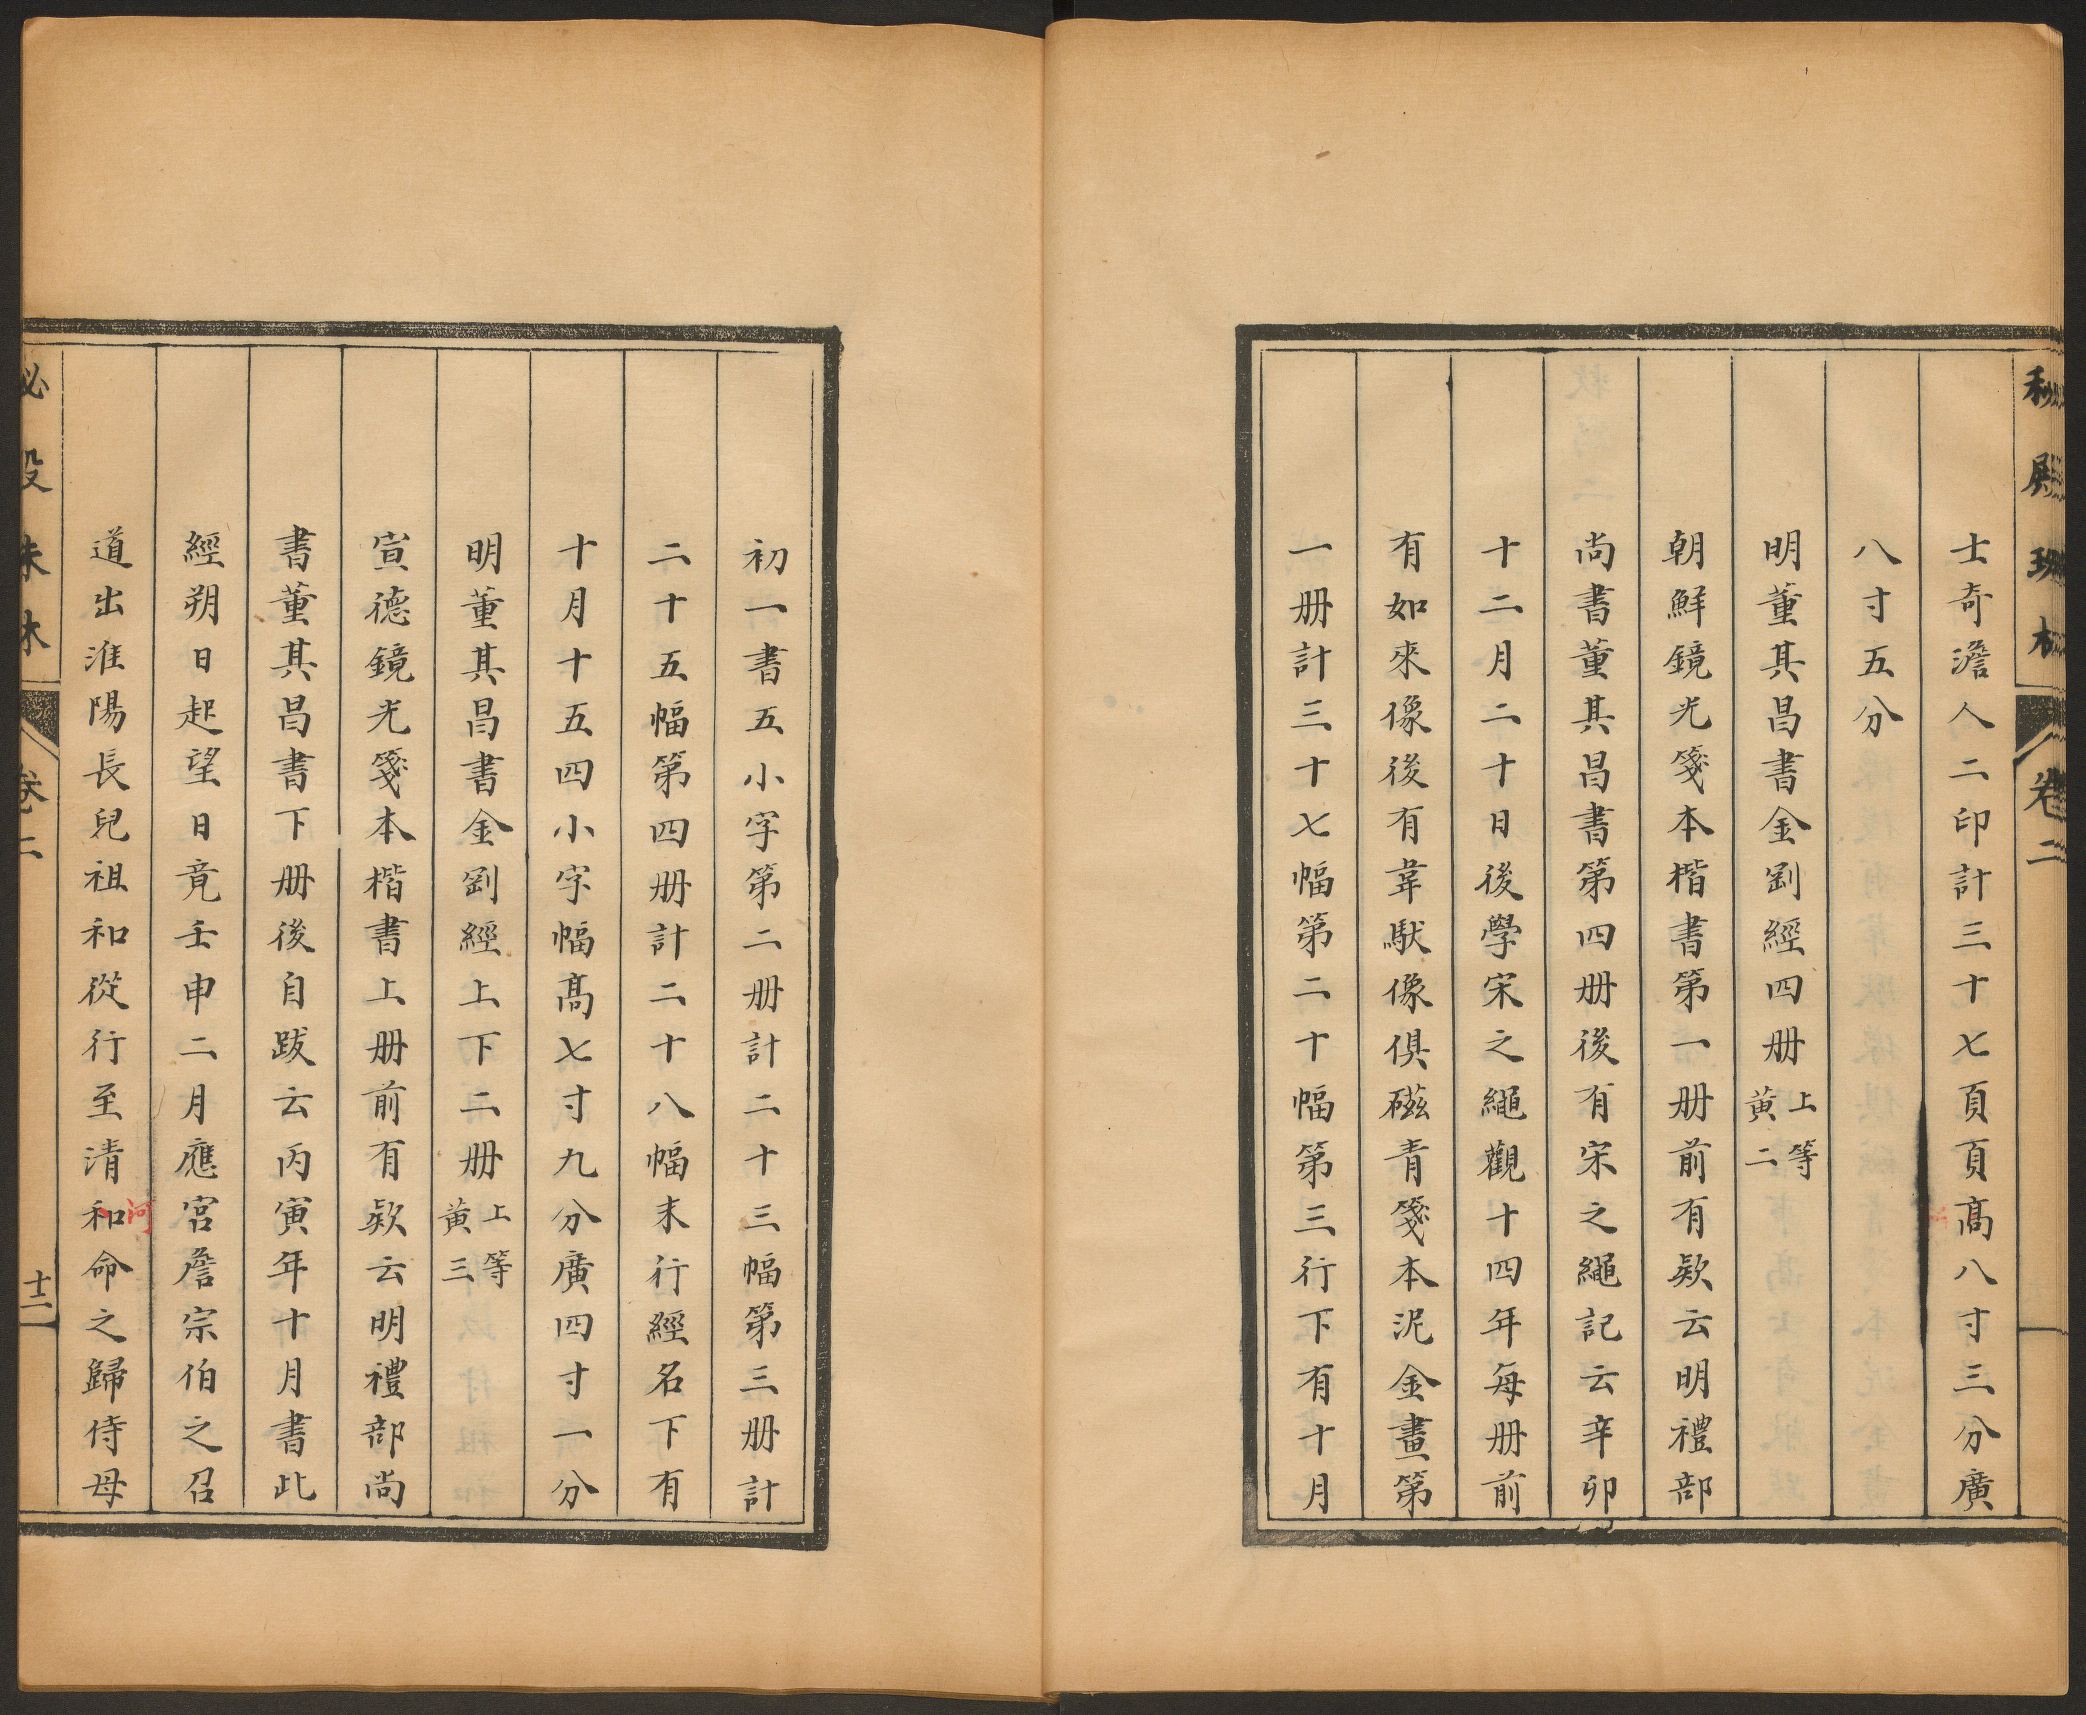 秘殿珠林 卷二
士奇澹人二印計三十七頁頁高八寸三分廣
八寸五分
明董其昌書金剛經四册上等黃二
朝鮮鏡光箋本楷書第一册前有欵云明禮部
尚書董其昌書第四册後有宋之繩記云辛卯
十二月二十日後學宋之繩觀十四年每册前
有如來像後有韋馱像俱磁青箋本泥金畫第
一册計三十七幅第二十幅第三行下有十月
初一書五小字第二册計二十三幅第三册計
二十五幅第四册計二十八幅末行經名下有
十月十五四小字幅高七寸九分廣四寸一分
明董其昌書金剛經上下二册上等黃三
宣德鏡光箋本楷書上册前有欵云明禮部尚
書董其昌書下册後自跋云丙寅年十月書此
經朔日起望日竟壬申二月應宮詹宗伯之召
道出淮陽長兒祖和從行至清和命之歸侍母
河
秘殿珠林 卷二 十二